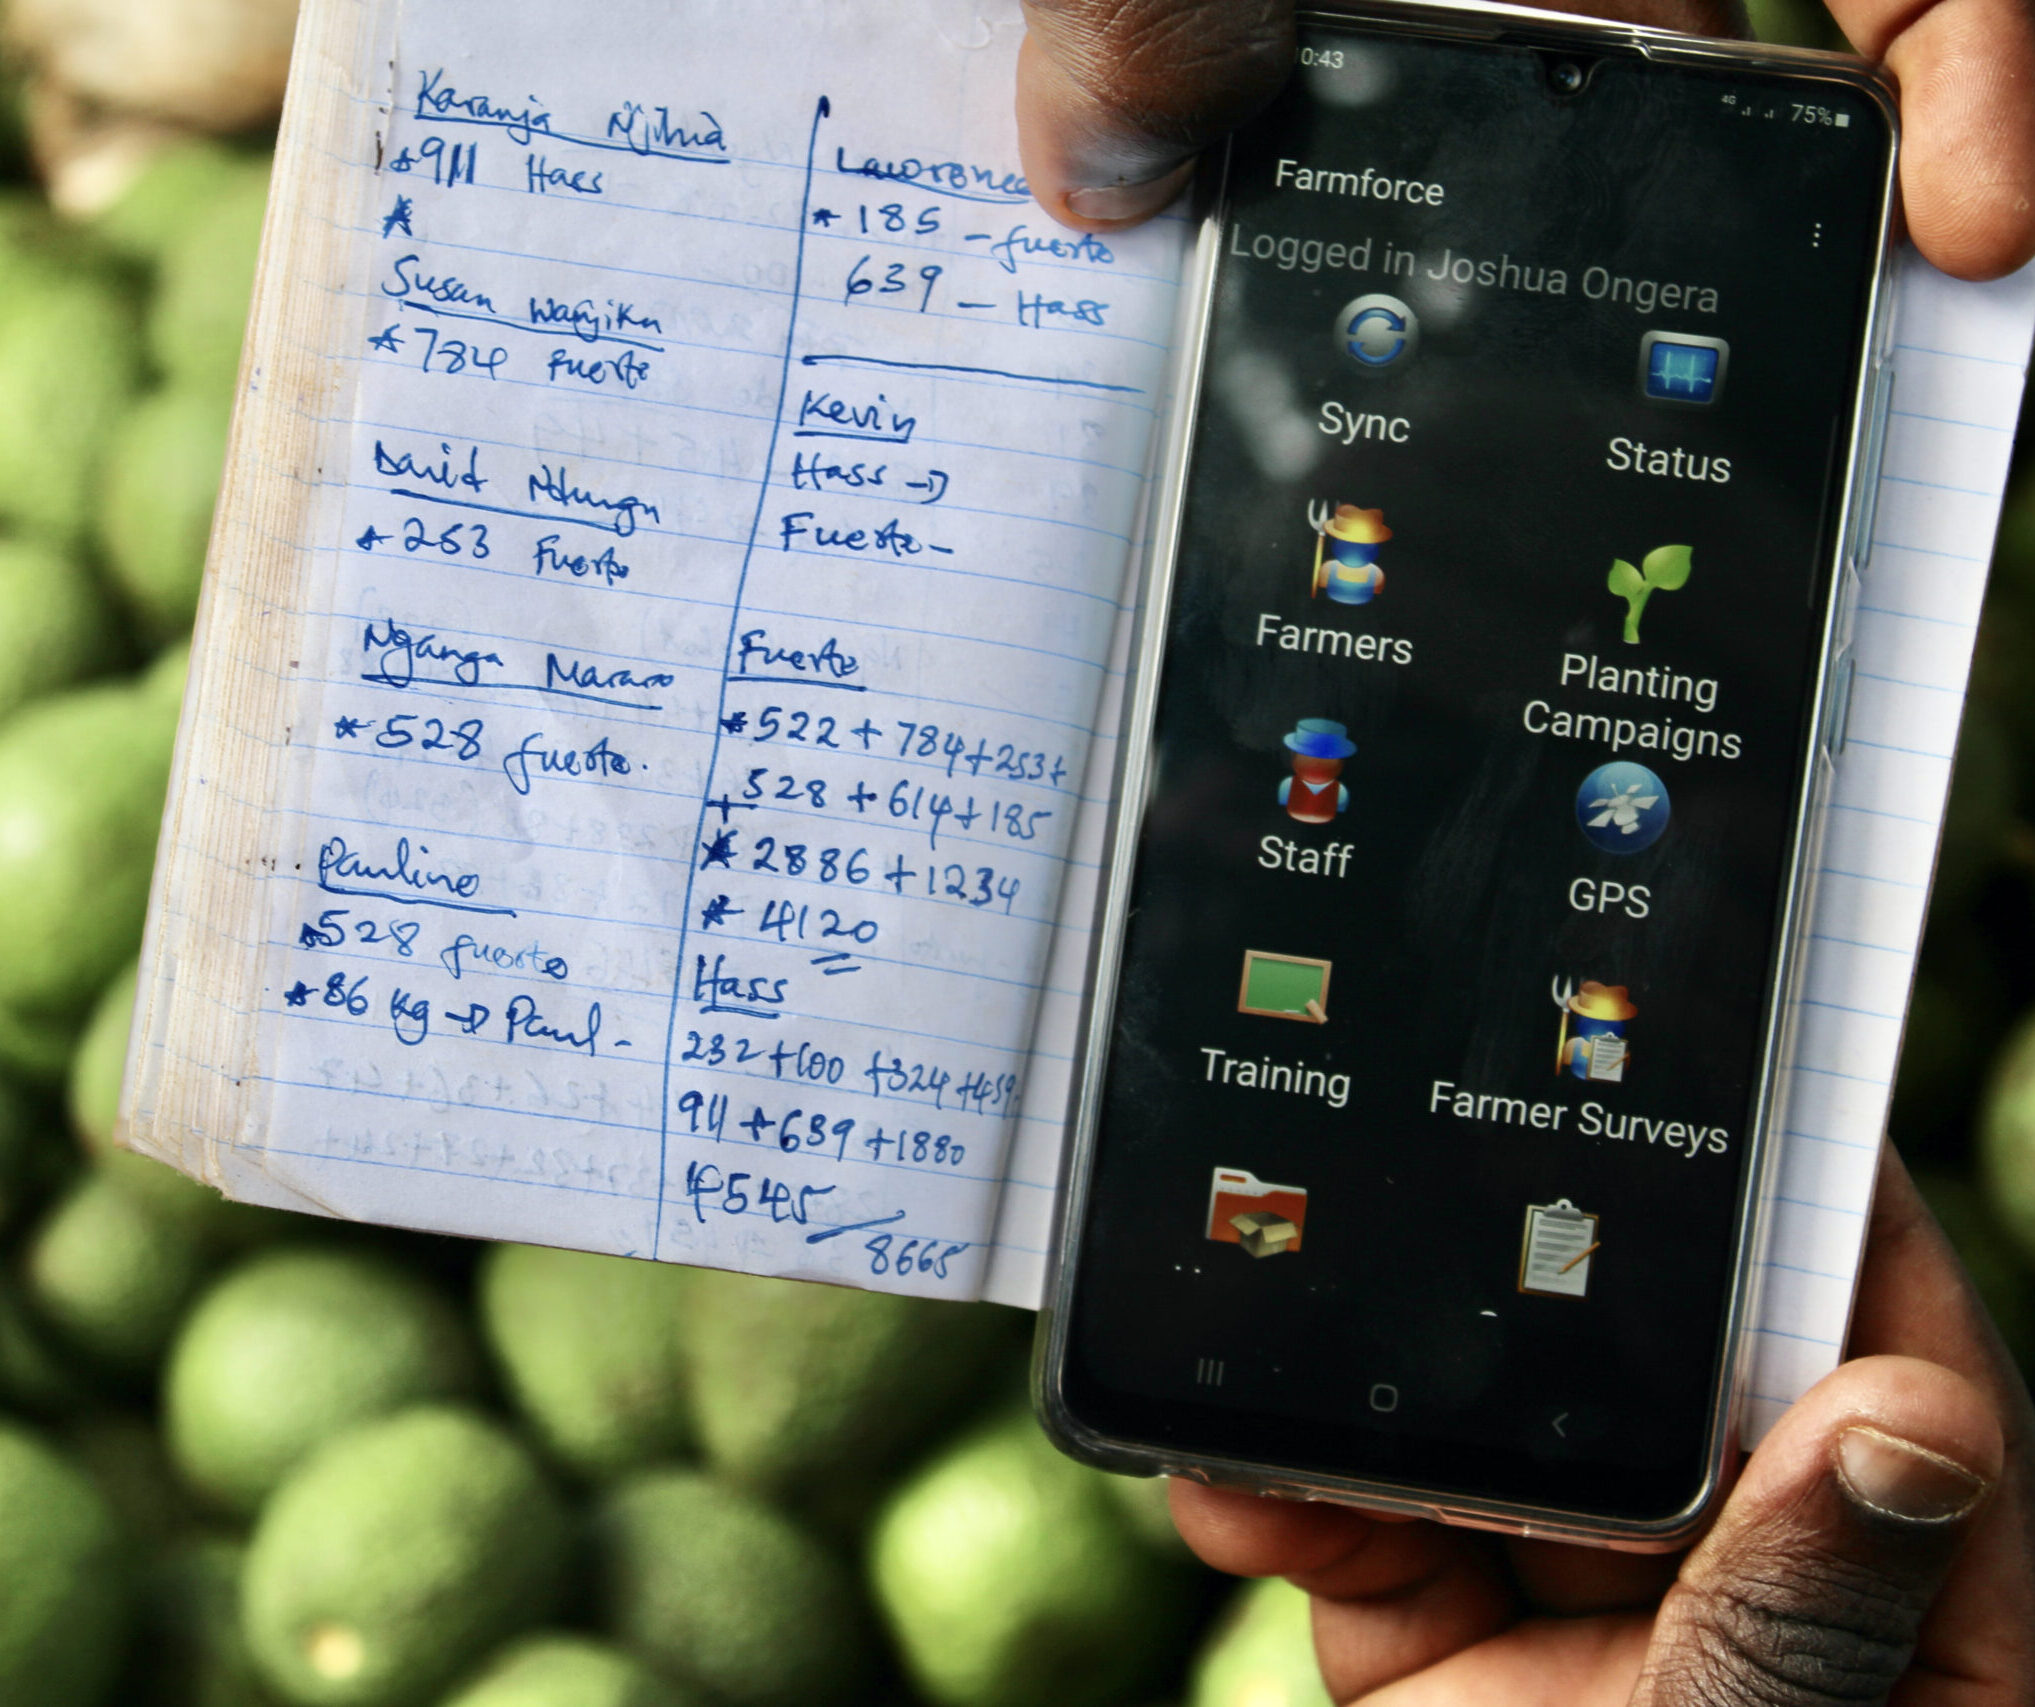 Karanja Njihia
*911 Hass
Susan Wanjiku
*784 Fuerte
David Ndungu
*253 Fuerte
Nganga Mararo
*528 fuerte.
Pauline
*528 fuerte
*86 kg → Paul -
Lawrence
* 185 - fuerte
639 - Hass
Kevin
Hass →
Fuerte -
Fuerte
*522 + 784 + 253 +
+528 + 614 + 185
* 2886 + 1234
* 4120
Hass
232 + 100 + 324 + 459
911 + 639 + 1880
4545
8665
0:43
4G 75%
Farmforce
Logged in Joshua Ongera
Sync
Status
Farmers
Planting
Campaigns
Staff
GPS
Training
Farmer Surveys